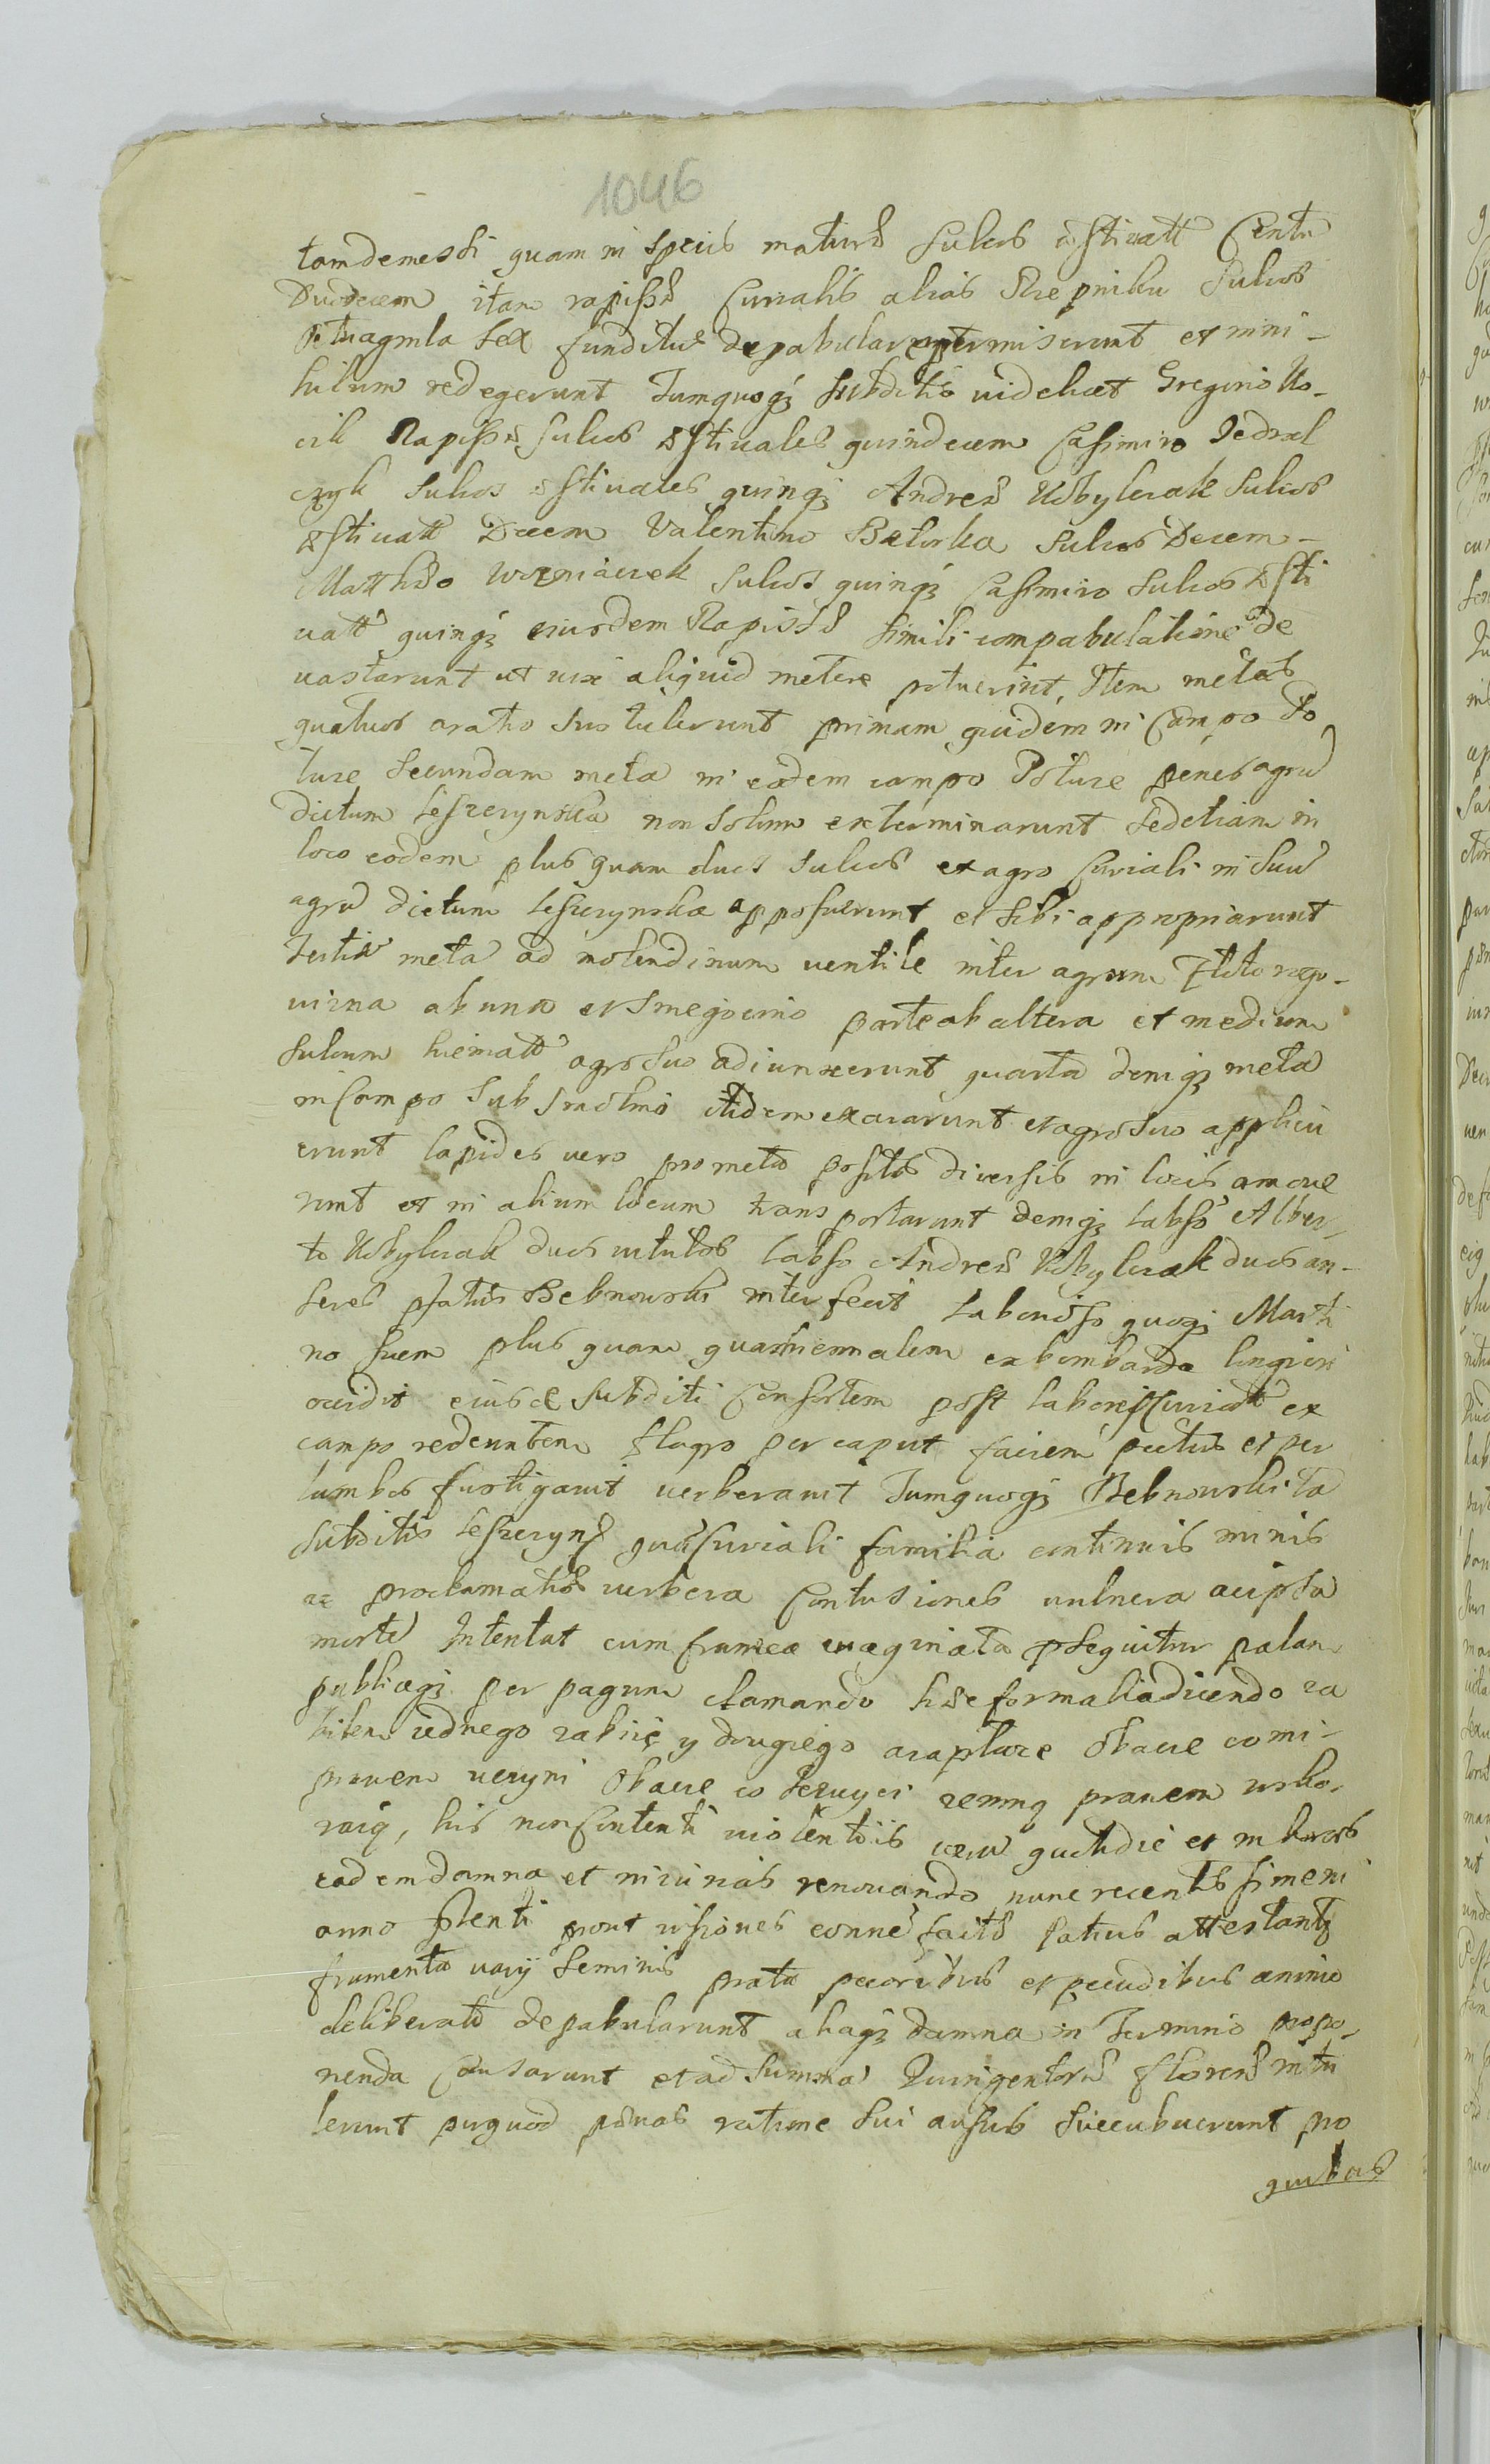 1046
tamdemessi quam in spicis maturis sulcos æstivatt Centu
Duodecem itam rapissæ Curialis alias Rzepniku Sulcos
sex funditus depabulare permiserunt et in ni-
hilum redegerunt Tumquoqz subditis videlicet Gregorio No-
cik Rapissæ sulcos æstivales quindecem Casimiro Jedrzel
czyk sulcos æstivales quinqz Andreæ Kobylerak sulcos
æstivatt Decem Valentino Betorka sulcos Decem-
Matthæo Wozniaczek sulcos quinqz Casimiro sulcos æsti
vatt quinqz eiusdem Rapissæ simili compabulatione de
vastarunt ut vix aliquid metere potuerint, Item metas
quatuor aratro sustulerunt primam quidem in Campo Po
ture secundam meta in eodem campo Poture penes agru
dictum Leszczynska non solum exterminarunt sedetiam in
loco eodem plus quam duos sulcos ex agro Curiali in suu
agru dictum Leszczynska apposuerunt et sibi appropriarunt
Tertia meta ad molendinum ventile inter agrum
ab una et parte ab altera et medium
sulcum hiematt agro suo adiunxerunt quarta deniqz meta
in Campo sub itidem exararunt et agro suo applicu
erunt lapides vero pro meta positos diversis in locis amove
runt et in alium locum transportarunt deniqz labso Alber-
to Kobylerak duos vitulos labso Andreæ Kobylerak duos an-
seres pfatus Bebnowski interfecit Laborioso quoqz Marti
no suem plus quam quatriennalem ex bombarda longiori
occidit eiusd subditi Consortem post labores Curiatt ex
campo redeuntem flagro per caput faciem pectus et per
lumbos fustigavit verberavit Tumquoqz Bebnowski ta
subditis Leszczyns qua Curiali familia continuis minis
ac proclamatos verbera Contusiones vulnera acipsa
morte Intentat cum framea evaginata psequitur palam
publiceqz per pagum clamando hæc formalia dicendo za
bilem iednego zabiię y drugiego azaplace obacze co mi
prawem uczyni obacze co ieruyci zemną prawem wsko-
raią, his non Contenti violentiis verum quotidie et in horas
eadem damna et iniurias renovando nunc recentissime in
anno pšenti prout visiones eonne factæ latius attestantz
frumenta varij seminis prata pecoribus et pecudibus animo
deliberato depabularunt aliaqz damna in Termino propo-
nenda Causarunt et ad summa Quingentoru florenoru intu
lerunt proquod pœnas ratione sui ausus succubuerunt pro
quibus